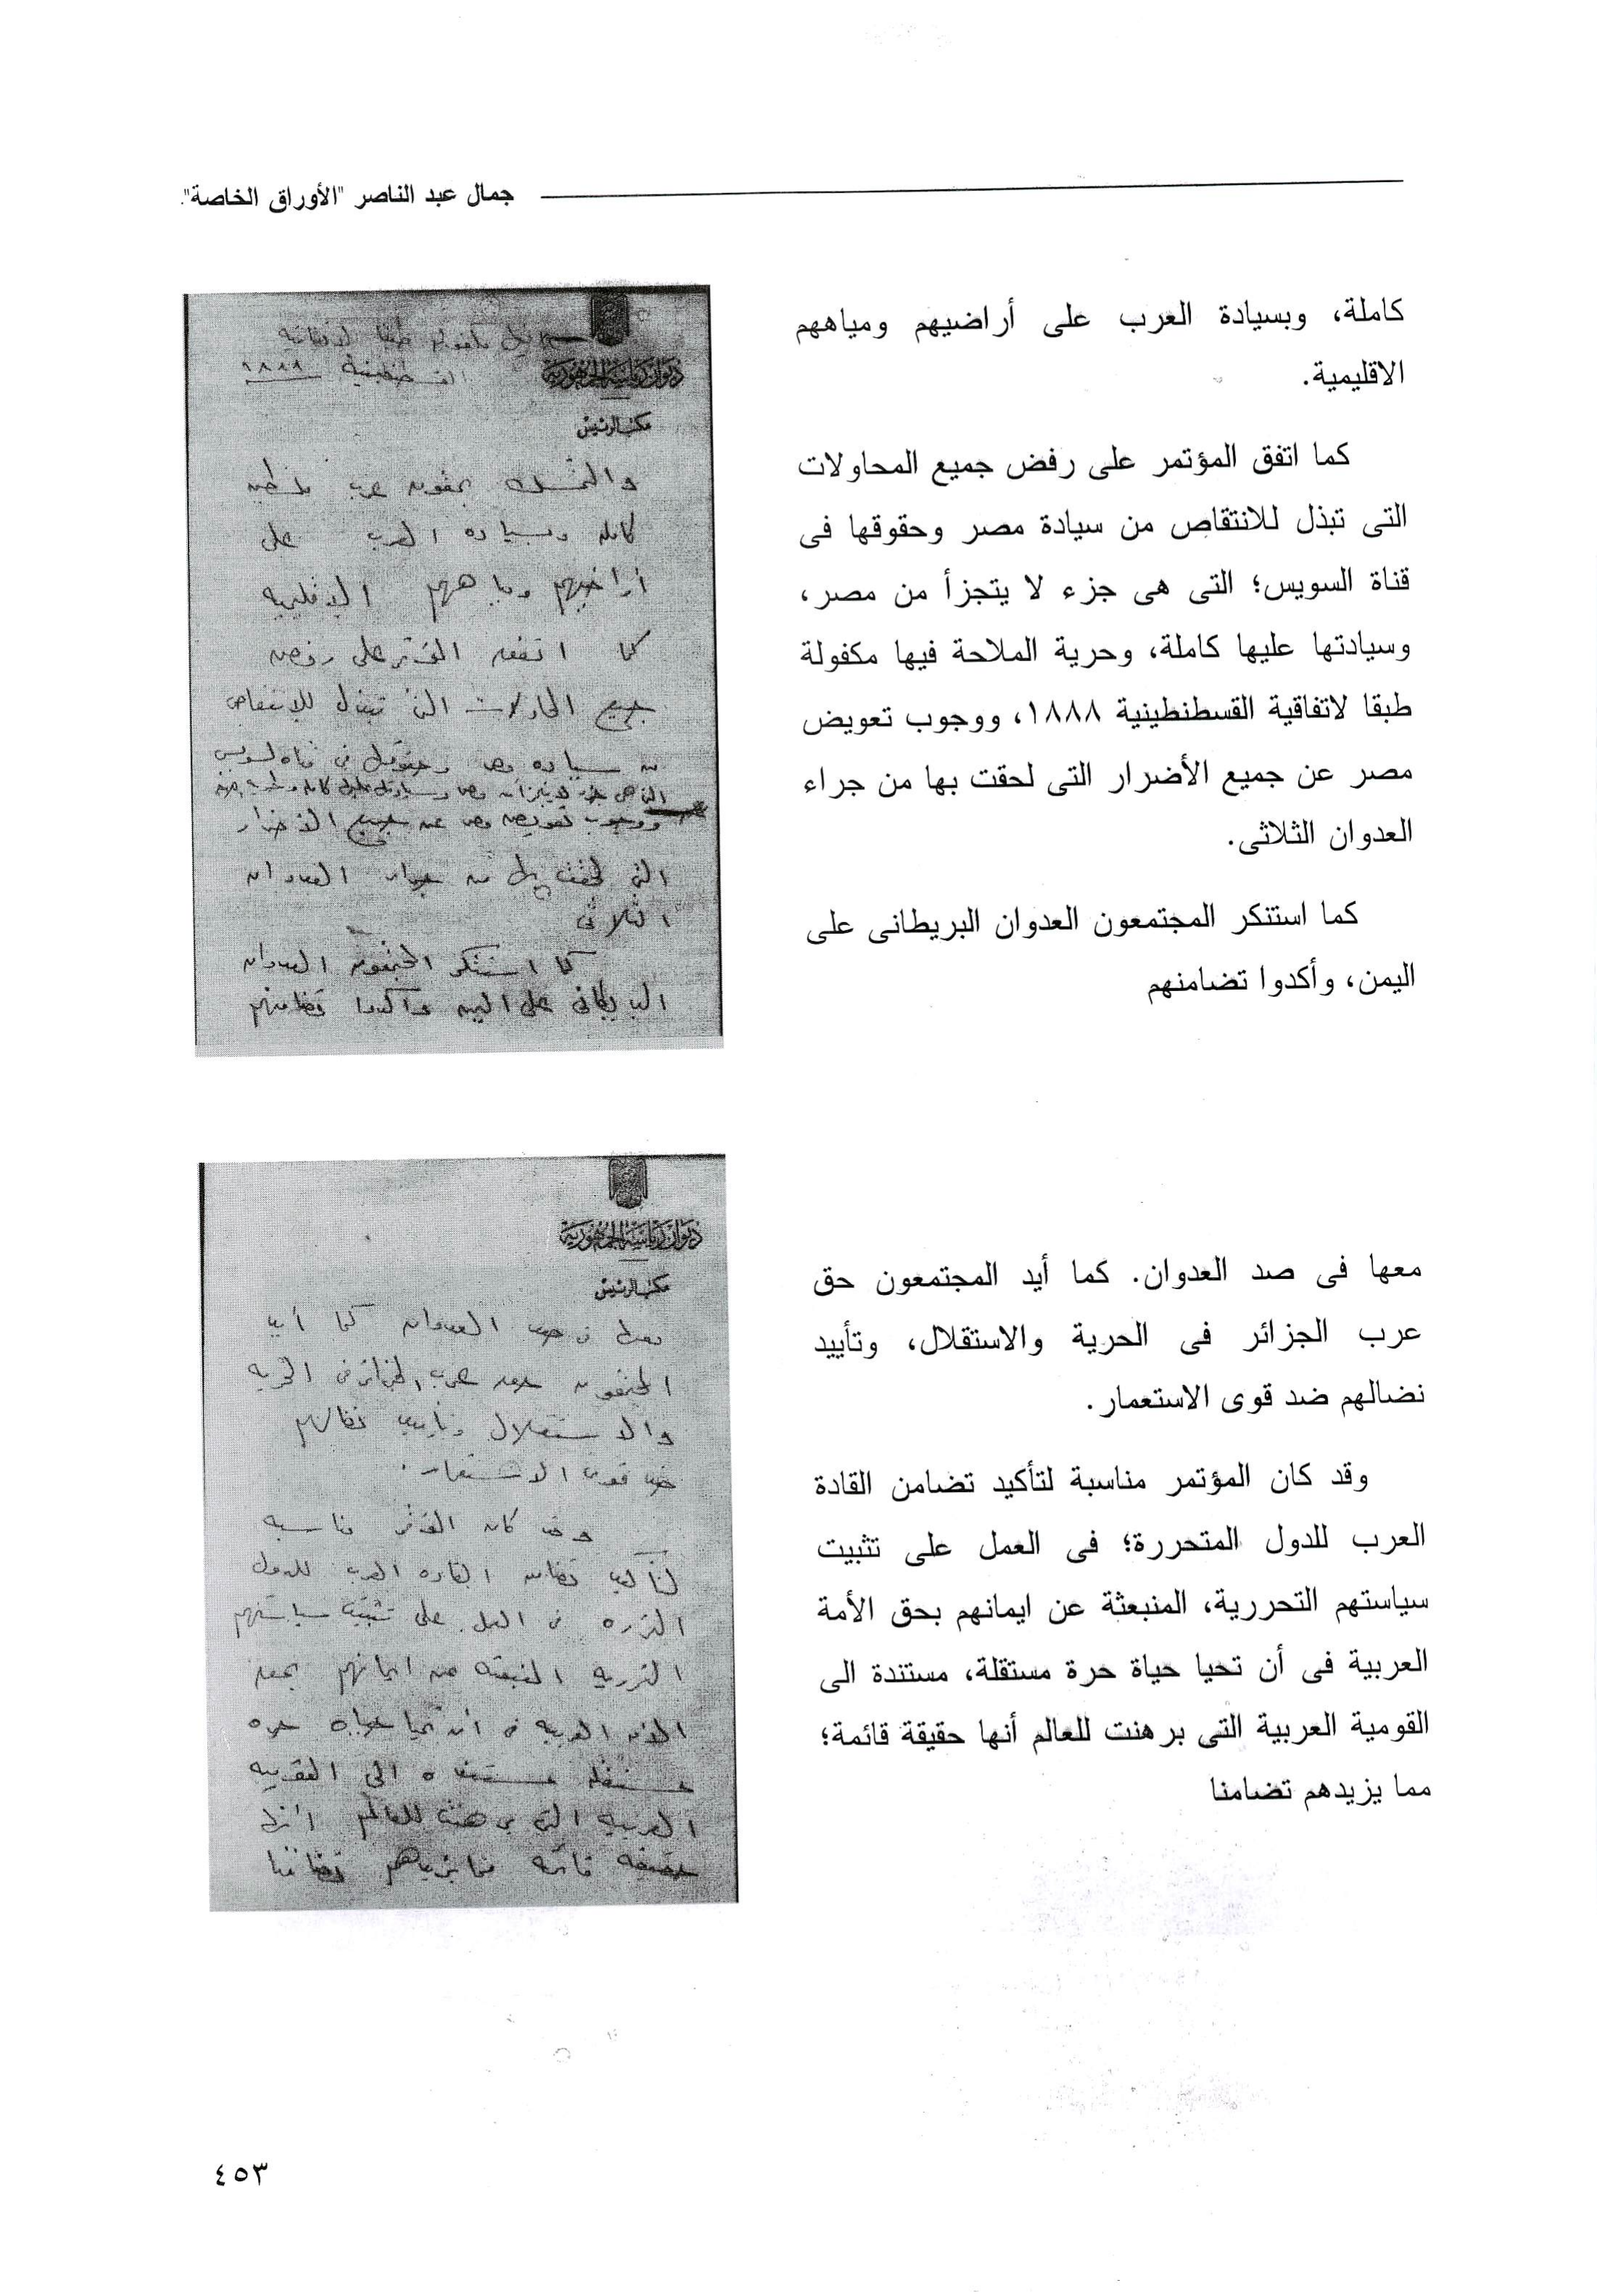 جمال عبد الناصر "الأوراق الخاصة".
كاملة، وبسيادة العرب على أراضيهم ومياههم
الاقليمية.
كما اتفق المؤتمر على رفض جميع المحاولات
التى تبذل للانتقاص من سيادة مصر وحقوقها فى
قناة السويس؛ التى هى جزء لا يتجزأ من مصر،
وسيادتها عليها كاملة، وحرية الملاحة فيها مكفولة
طبقا لاتفاقية القسطنطينية ١٨٨٨، ووجوب تعويض
مصر عن جميع الأضرار التى لحقت بها من جراء
العدوان الثلاثى.
كما استنكر المجتمعون العدوان البريطانى على
اليمن، وأكدوا تضامنهم
مكفوله طبقا لاتفاقيه
القسطنطينية ١٨٨٨
ديوان رياسة الجمهورية
مكتب الرئيس
والتمسك بحقوق عرب فلسطين
كامله وبسياده العرب على
أراضيهم ومياههم الإقليميه
كما اتفق المؤتمر على رفض
جميع المحاولات التى تبذل للإنتقاص
من سياده مصر وحقوقها فى قناه السويس
التى هى جزء لا يتجزأ من مصر وسيادتها عليها كامله وحريه
ووجوب تعويض مصر عن جميع الأضرار
التى لحقت بها من جراء العدوان
الثلاثى
كما استنكر المجتمعون العدوان
البريطانى على اليمن وأكدوا تضامنهم
معها فى صد العدوان. كما أيد المجتمعون حق
عرب الجزائر فى الحرية والاستقلال، وتأييد
نضالهم ضد قوى الاستعمار.
وقد كان المؤتمر مناسبة لتأكيد تضامن القادة
العرب للدول المتحررة؛ فى العمل على تثبيت
سياستهم التحررية، المنبعثة عن ايمانهم بحق الأمة
العربية فى أن تحيا حياة حرة مستقلة، مستندة الى
القومية العربية التى برهنت للعالم أنها حقيقة قائمة؛
مما يزيدهم تضامنا
ديوان رياسة الجمهورية
مكتب الرئيس
معها فى صد العدوان كما أيد
المجتمعون حق عرب الجزائر فى الحريه
والاستقلال وتأييد نضالهم
ضد قوى الاستعمار.
وقد كان المؤتمر مناسبه
لتأكيد تضامن القاده العرب للدول
المتحرره فى العمل على تثبيت سياستهم
التحرريه المنبعثه عن ايمانهم بحق
الأمه العربيه فى أن تحيا حياه حره
مستقله مستنده الى القوميه
العربيه التى برهنت للعالم أنها
حقيقه قائمه مما يزيدهم تضامنا
٤٥٣